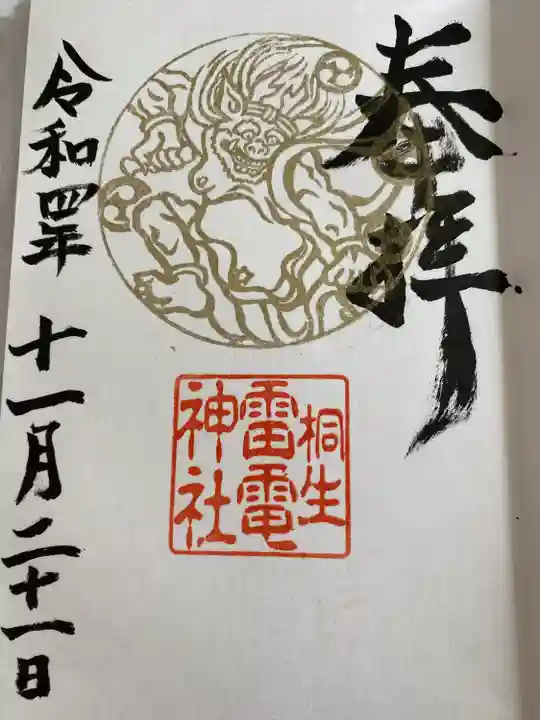 奉拝
桐生
雷電
神社
令和四年 十一月二十一日